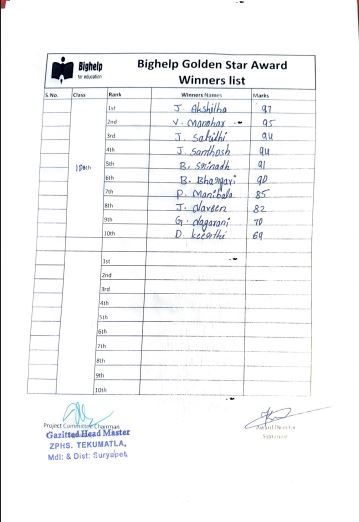 Bighelp
for education
Bighelp Golden Star Award
Winners list
S No. Class Rank Winners Names Marks
1st J. Akshitha 97
2nd V. Manohar 95
3rd J. Sahithi 94
4th J. Santhosh 94
10th 5th B. Srinadh 91
6th B. Bhargavi 90
7th P. Manibala 85
8th J. Naveen 82
9th G. Nagarani 70
10th D. Keerthi 69
1st
2nd
3rd
4th
5th
6th
7th
8th
9th
10th
Project Committee Chairman
Gazitted Head Master
ZPHS. TEKUMATLA,
Mdl: & Dist: Suryapet
Award Director
Signature